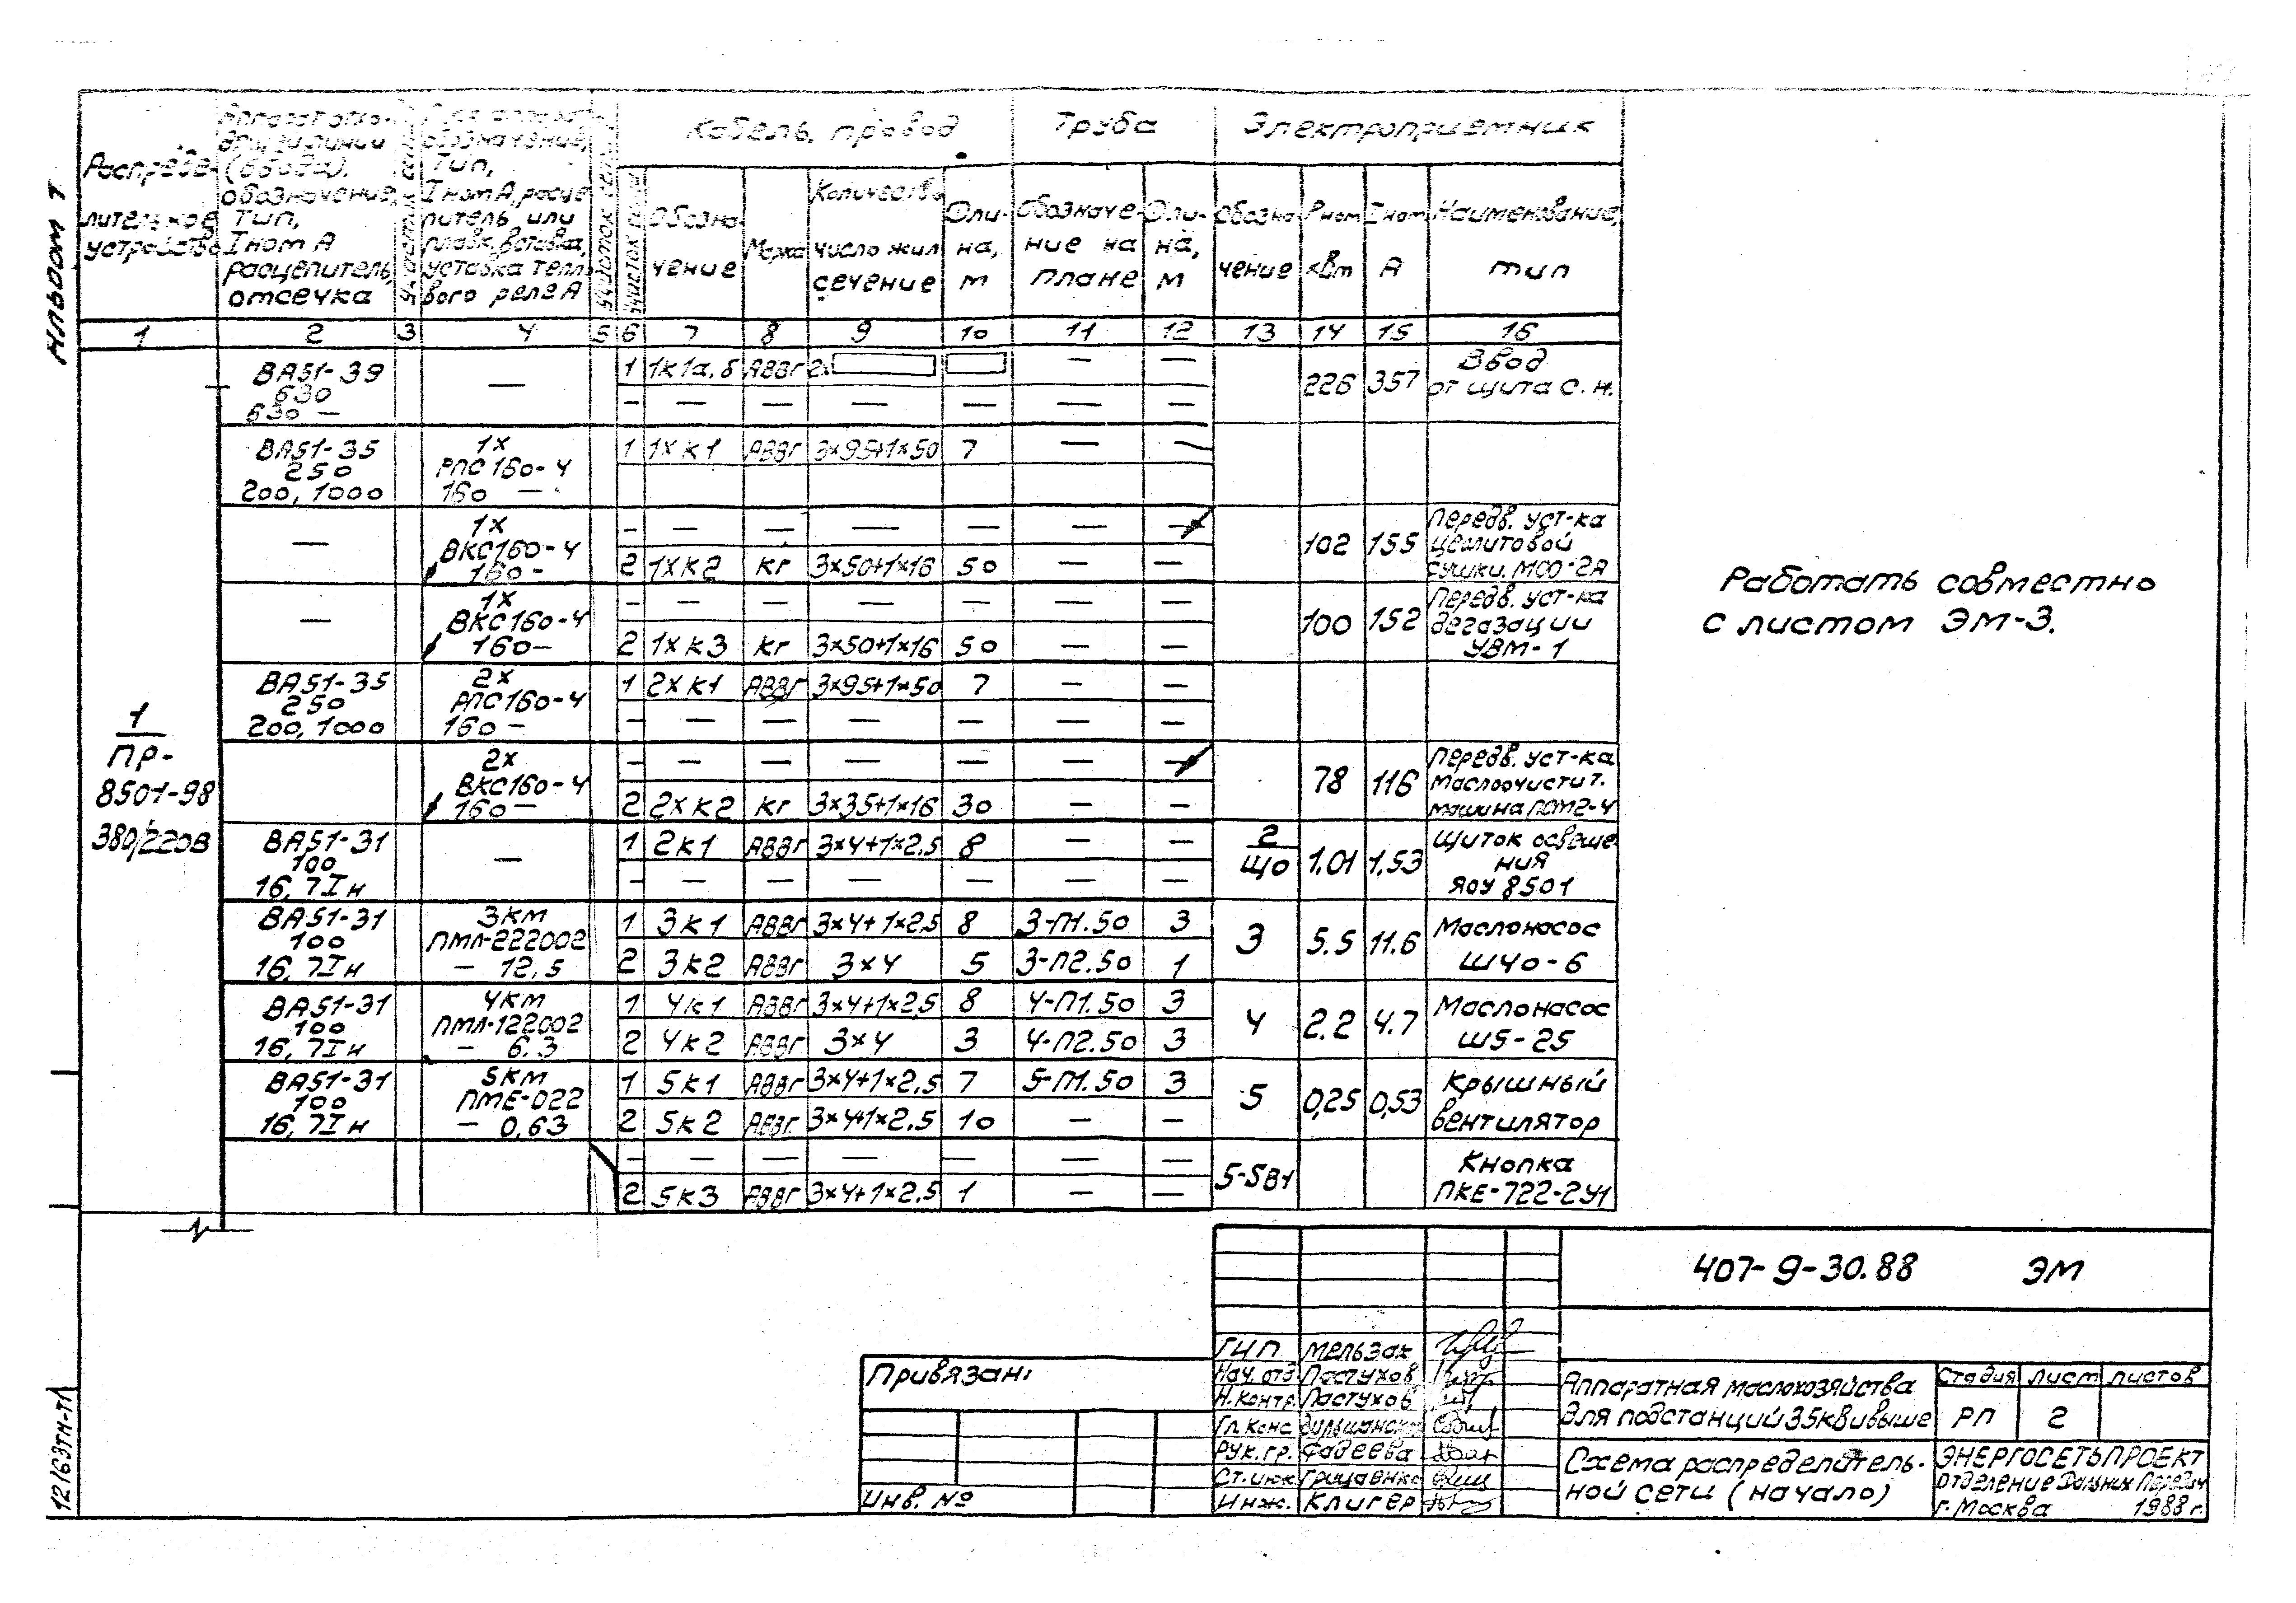 Альбом 1
Распреде-
лительное
устройство
Аппарат отхо-
дящей линии
(ввода),
обозначение,
тип,
Iном А
расцепитель,
отсечка
обозначение,
Тип,
Iном А, расце
питель или
плавк. вставка,
уставка тепло
вого реле А
Участок сети
Кабель, провод
Обозна-
чение
Марка
Количество
число жил
сечение
Дли-
на,
м
Труба
Обозначе-
ние на
плане
Дли-
на,
м
Электроприемник
Обозна-
чение
Рном
кВт
Iном
А
Наименование,
тип
1 2 3 4 5 6 7 8 9 10 11 12 13 14 15 16
1
ПР-
8501-98
380/220В
ВА51-39
630
630 —
—
1 1К1а,б АВВГ 2х — —
— — — — — — —
226 357
Ввод
от щита с.н.
ВА51-35
250
200, 1000
1Х
РПС160-4
160 —
1 1ХК1 АВВГ 3×95+1×50 7 — —
—
1Х
ВКС160-4
160 —
— — — — — — —
2 1ХК2 КГ 3×50+1×16 50 — —
102 155
Передв. уст-ка
цеолитовой
сушки МСО-2А
—
1Х
ВКС160-4
160 —
— — — — — — —
2 1ХК3 КГ 3×50+1×16 50 — —
100 152
Передв. уст-ка
дегазации
УВМ-1
ВА51-35
250
200, 1000
2Х
РПС160-4
160 —
1 2ХК1 АВВГ 3×95+1×50 7 — —
— — — — — — —
2Х
ВКС160-4
160 —
— — — — — — —
2 2ХК2 КГ 3×35+1×16 30 — —
78 116
Передв. уст-ка
маслоочистит.
машина ПСМ2-4
ВА51-31
100
16, 7Iн
—
1 2К1 АВВГ 3×4+1×2,5 8 — —
— — — — — — —
2
ЩО
1.01 1,53
Щиток освеще
ния
ЯОУ 8501
ВА51-31
100
16, 7Iн
3КМ
ПМЛ-222002
— 12,5
1 3К1 АВВГ 3×4+1×2,5 8 3-П1.50 3
2 3К2 АВВГ 3×4 5 3-П2.50 1
3 5.5 11.6
Маслонасос
Ш40-6
ВА51-31
100
16, 7Iн
4КМ
ПМЛ-122002
— 6.3
1 4К1 АВВГ 3×4+1×2,5 8 4-П1.50 3
2 4К2 АВВГ 3×4 3 4-П2.50 3
4 2.2 4.7
Маслонасос
Ш5-25
ВА51-31
100
16, 7Iн
5КМ
ПМЕ-022
— 0,63
1 5К1 АВВГ 3×4+1×2,5 7 5-П1.50 3
2 5К2 АВВГ 3×4+1×2,5 10 — —
5 0,25 0,53
Крышный
вентилятор
— — — — — — —
2 5К3 АВВГ 3×4+1×2,5 1 — —
5-SВ1
Кнопка
ПКЕ-722-2У1
Работать совместно
с листом ЭМ-3.
12163тм-т1
Привязан:
Инв. №
407-9-30.88 ЭМ
ГИП Мельзак
Нач. отд Пастухов
Н. контр. Пастухов
Гл. конс
Рук. гр. Фадеева
Ст. инж Грицаенко
Инж. Клигер
Аппаратная маслохозяйства
для подстанций 35кВ и выше
Стадия Лист Листов
РП 2
Схема распределитель-
ной сети (начало)
ЭНЕРГОСЕТЬПРОЕКТ
Отделение Дальних Передач
г. Москва 1988 г.